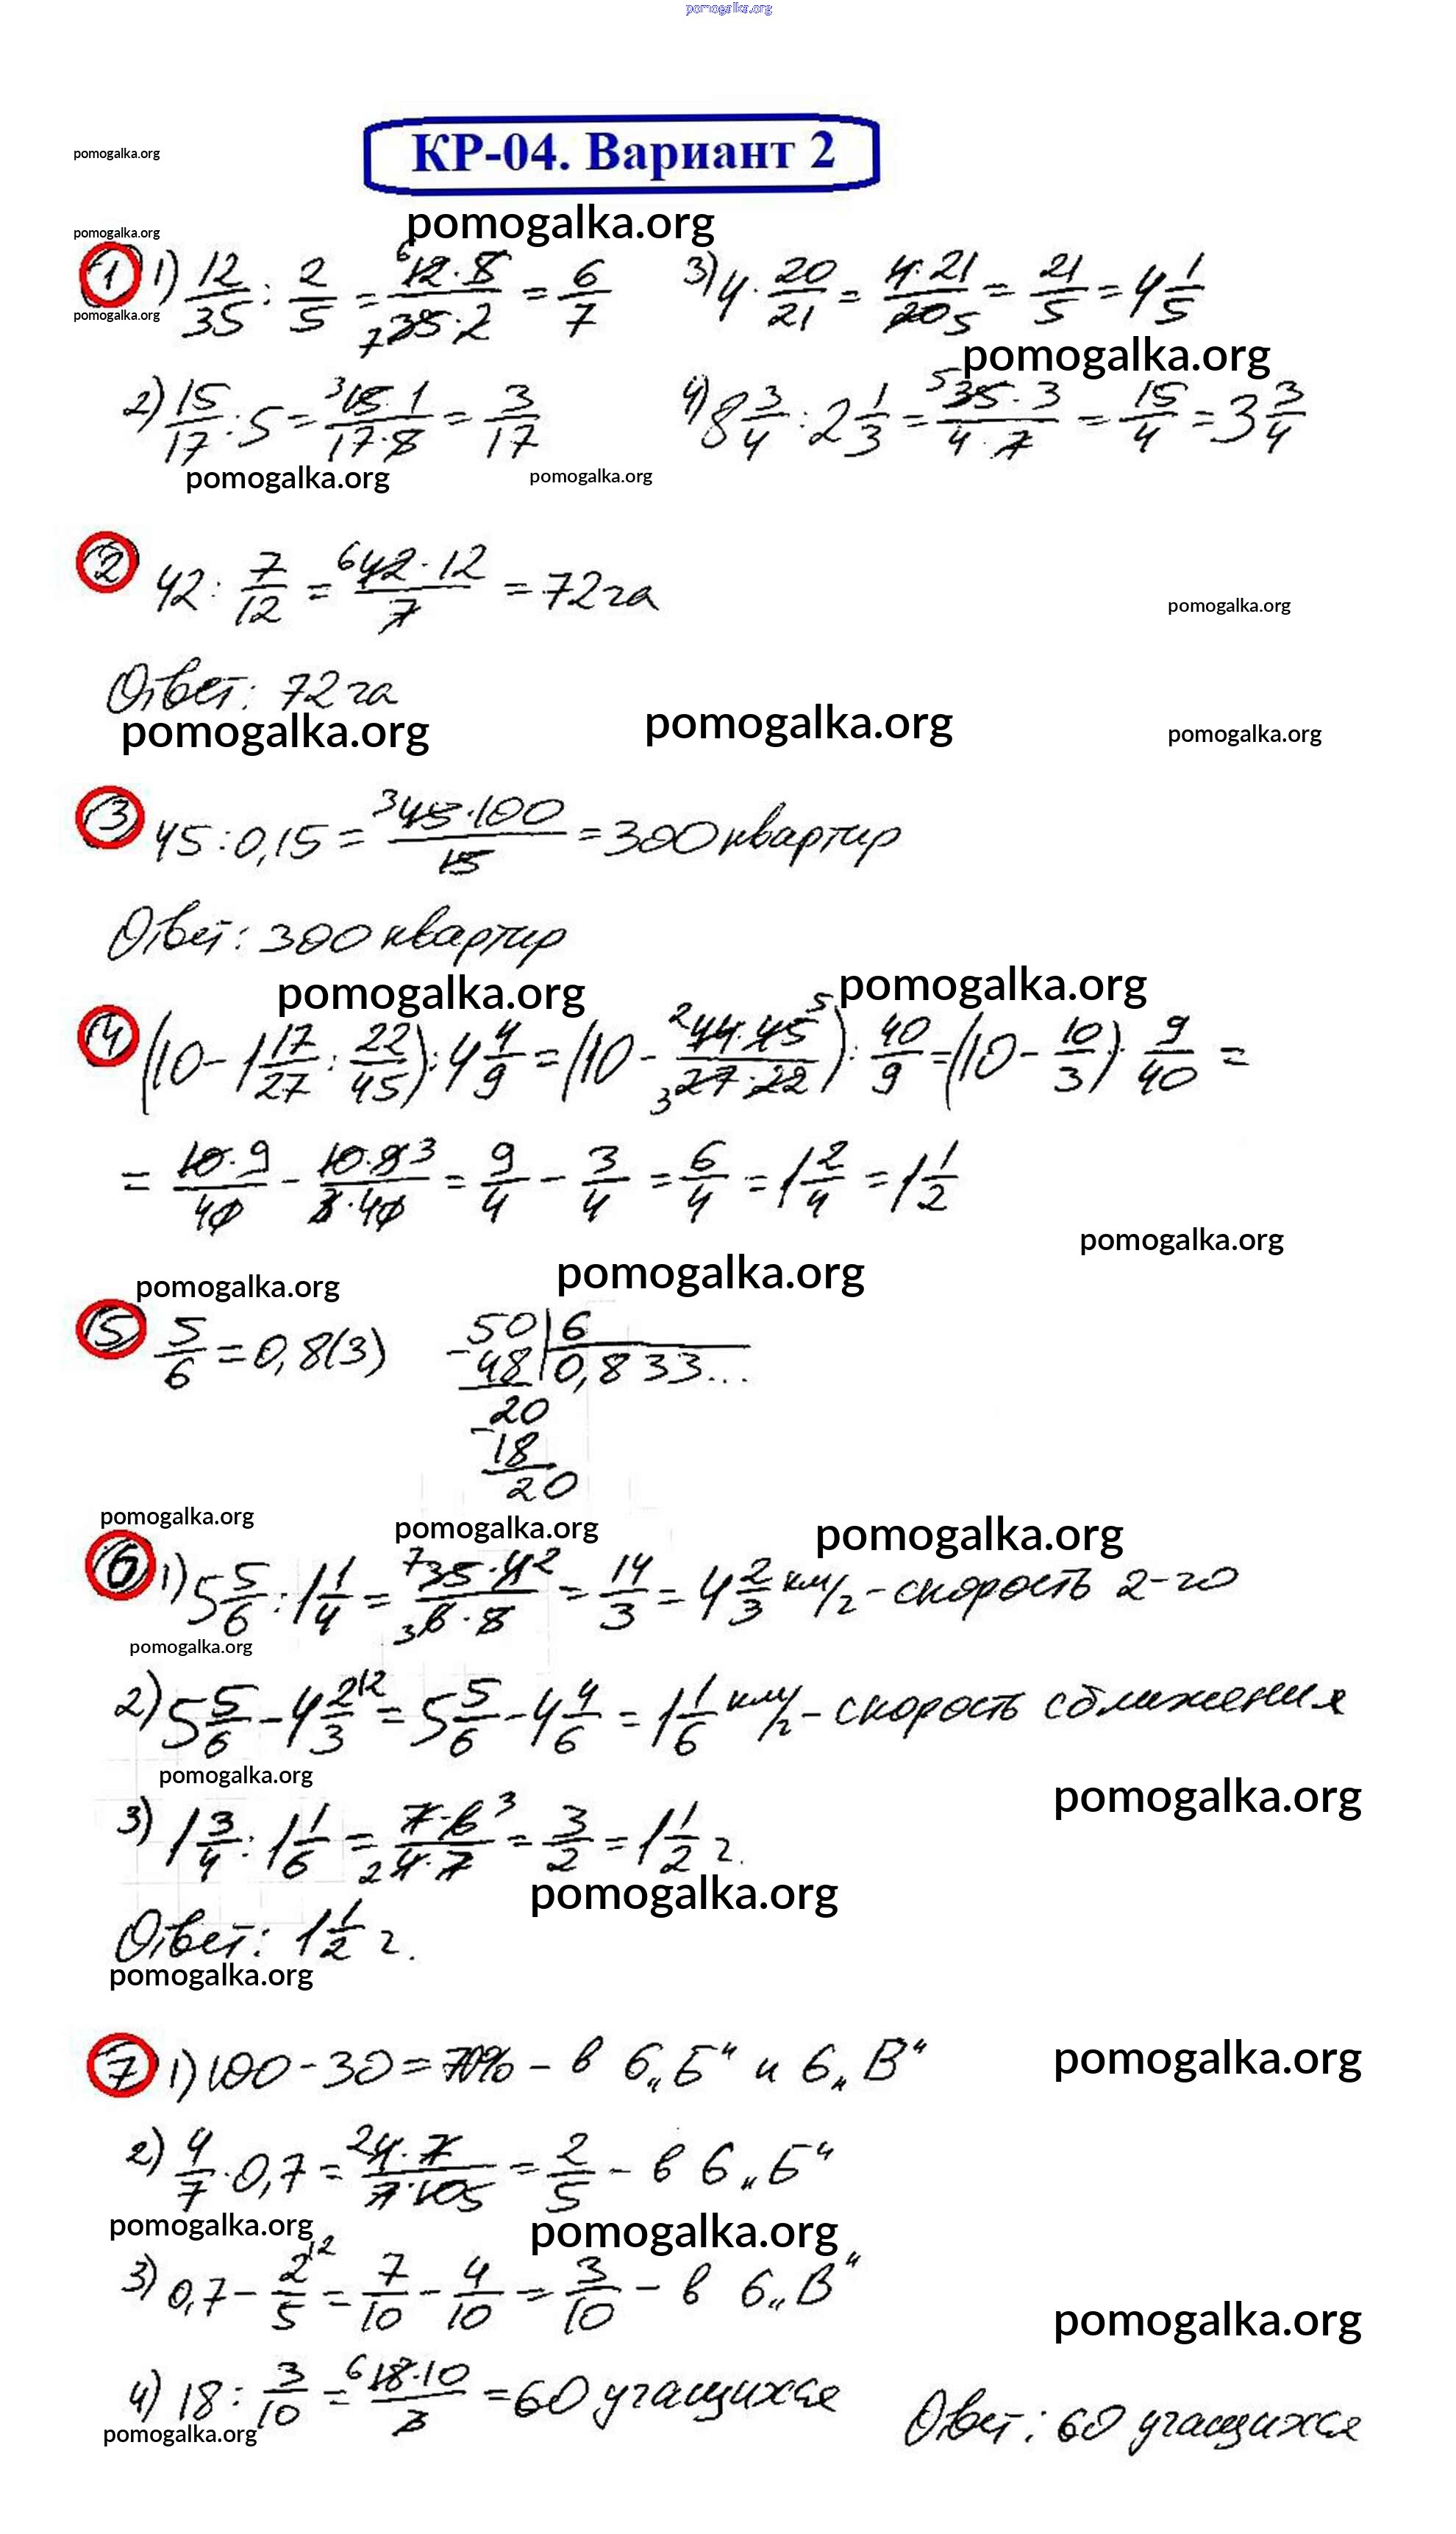 pomogalka.org
КР-04. Вариант 2
pomogalka.org
pomogalka.org
pomogalka.org
1 1) 12/35 : 2/5 = 12·5/35·2 = 6/7 3) 4 · 20/21 = 4·21/20 = 21/5 = 4 1/5
pomogalka.org
pomogalka.org
2) 15/17 : 5 = 15·1/17·5 = 3/17 4) 8 3/4 : 2 1/3 = 35·3/4·7 = 15/4 = 3 3/4
pomogalka.org pomogalka.org
2 42 : 7/12 = 42·12/7 = 72 га
pomogalka.org
Ответ: 72 га
pomogalka.org pomogalka.org pomogalka.org
3 45 : 0,15 = 45·100/15 = 300 квартир
Ответ: 300 квартир
pomogalka.org pomogalka.org
4 (10 - 1 17/27 : 22/45) : 4 4/9 = (10 - 44·45/27·22) : 40/9 = (10 - 10/3) · 9/40 =
= 10·9/40 - 10·9/3·40 = 9/4 - 3/4 = 6/4 = 1 2/4 = 1 1/2
pomogalka.org
pomogalka.org pomogalka.org
5 5/6 = 0,8(3) 50 | 6
-48 | 0,833...
20
-18
20
pomogalka.org pomogalka.org pomogalka.org
6 1) 5 5/6 : 1 1/4 = 35·4/6·5 = 14/3 = 4 2/3 км/г - скорость 2-го
pomogalka.org
2) 5 5/6 - 4 2/3 = 5 5/6 - 4 4/6 = 1 1/6 км/г - скорость сближения
pomogalka.org pomogalka.org
3) 1 3/4 : 1 1/6 = 7·6/4·7 = 3/2 = 1 1/2 г.
pomogalka.org
Ответ: 1 1/2 г.
pomogalka.org
7 1) 100 - 30 = 70% - в 6„Б" и 6„В"
pomogalka.org
2) 4/7 · 0,7 = 4·7/7·10 = 2/5 - в 6„Б"
pomogalka.org pomogalka.org
3) 0,7 - 2/5 = 7/10 - 4/10 = 3/10 - в 6„В"
pomogalka.org
4) 18 : 3/10 = 18·10/3 = 60 учащихся
pomogalka.org
Ответ: 60 учащихся